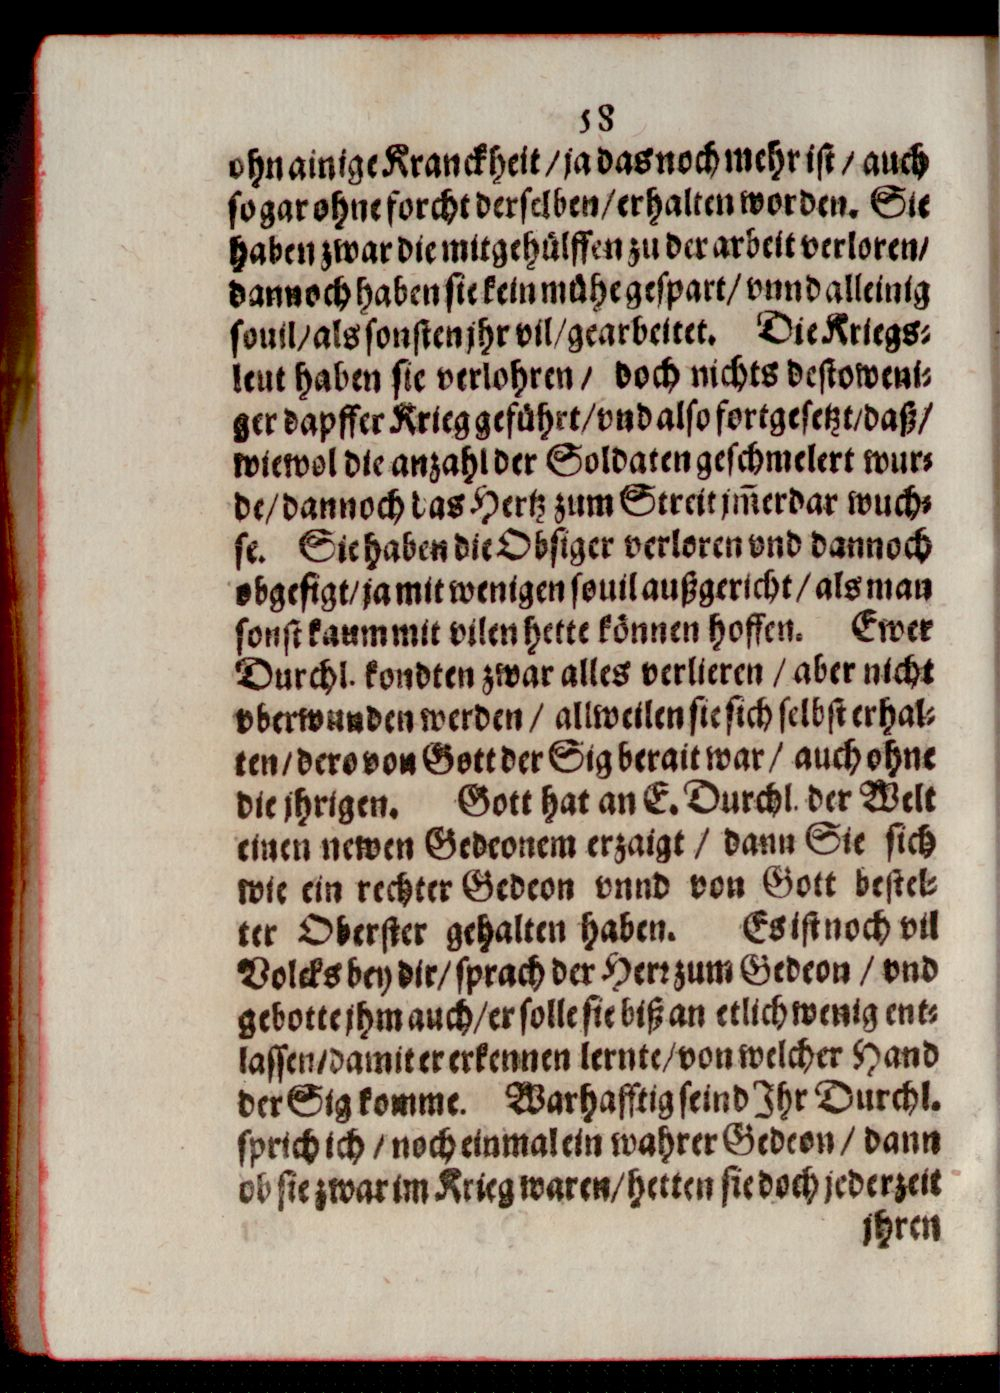 58
ohn ainige Kranckheit / ja das noch mehr ist / auch
so gar ohne forcht derselben / erhalten worden. Sie
haben zwar die mitgehülffen zu der arbeit verloren /
dannoch haben sie kein mühe gespart / vnnd alleinig
souil / als sonsten jhr vil / gearbeitet. Die Kriegs-
leut haben sie verlohren / doch nichts destoweni-
ger dapffer Krieg geführt / vnd also fortgesetzt / daß /
wiewol die anzahl der Soldaten geschmelert wur-
de / dannoch das Hertz zum Streit jm̃erdar wuch-
se. Sie haben die Obsiger verloren vnd dannoch
obgesigt / ja mit wenigen souil außgericht / als man
sonst kaum mit vilen hette können hoffen. Ewer
Durchl. kondten zwar alles verlieren / aber nicht
vberwunden werden / allweilen sie sich selbst erhal-
ten / dero von Gott der Sig berait war / auch ohne
die jhrigen. Gott hat an E. Durchl. der Welt
einen newen Gedeonem erzaigt / dann Sie sich
wie ein rechter Gedeon vnnd von Gott bestel-
ter Oberster gehalten haben. Es ist noch vil
Volcks bey dir / sprach der Herr zum Gedeon / vnd
gebotte jhm auch / er solle sie biß an etlich wenig ent-
lassen / damit er erkennen lernte / von welcher Hand
der Sig komme. Warhafftig seind Ihr Durchl.
sprich ich / noch einmal ein wahrer Gedeon / dann
ob sie zwar im Krieg waren / hetten sie doch jederzeit
jhren